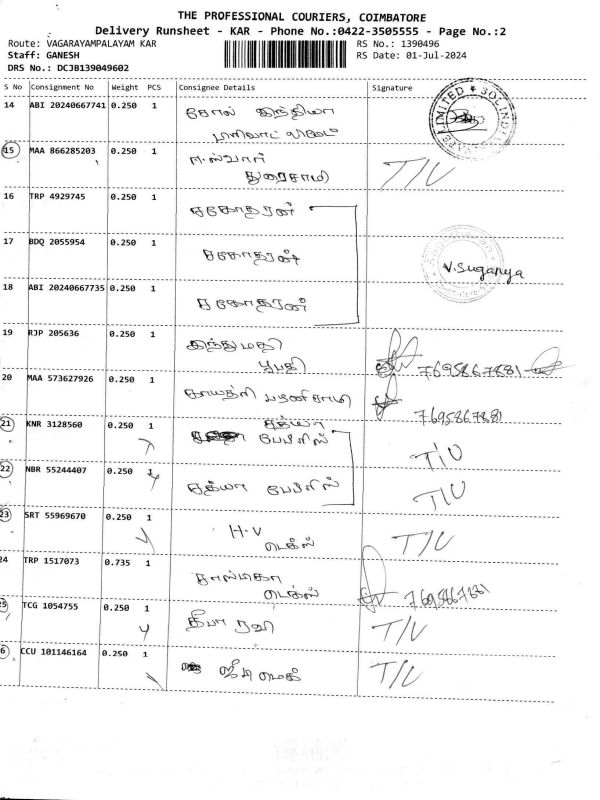 THE PROFESSIONAL COURIERS, COIMBATORE
Delivery Runsheet - KAR - Phone No.:0422-3505555 - Page No.:2
Route: VAGARAYAMPALAYAM KAR
RS No.: 1390496
Staff: GANESH
RS Date: 01-Jul-2024
DRS No.: DCJB139049602
S No Consignment No Weight PCS Consignee Details Signature
14 ABI 20240667741 0.250 1 சோல் இந்தியா
15 MAA 866285203 0.250 1 T/U
துரைசாமி
16 TRP 4929745 0.250 1 சகோதரன்
17 BDQ 2055954 0.250 1 சகோதரன் V.Suganya
18 ABI 20240667735 0.250 1 சகோதரன்
19 RJP 205636 0.250 1 இந்துமதி
பூபதி 7695867881
20 MAA 573627926 0.250 1 காயத்ரி பழனிசாமி
7695867881
21 KNR 3128560 0.250 1 சத்யா பேப்ரிஸ் T/U
22 NBR 55244407 0.250 1 சத்யா பேப்ரிஸ் T/U
23 SRT 55969670 0.250 1 H.V T/U
டெக்ஸ்
24 TRP 1517073 0.735 1
டெக்ஸ் 7695867881
25 TCG 1054755 0.250 1 தீபா ரவி T/U
6 CCU 101146164 0.250 1 T/U